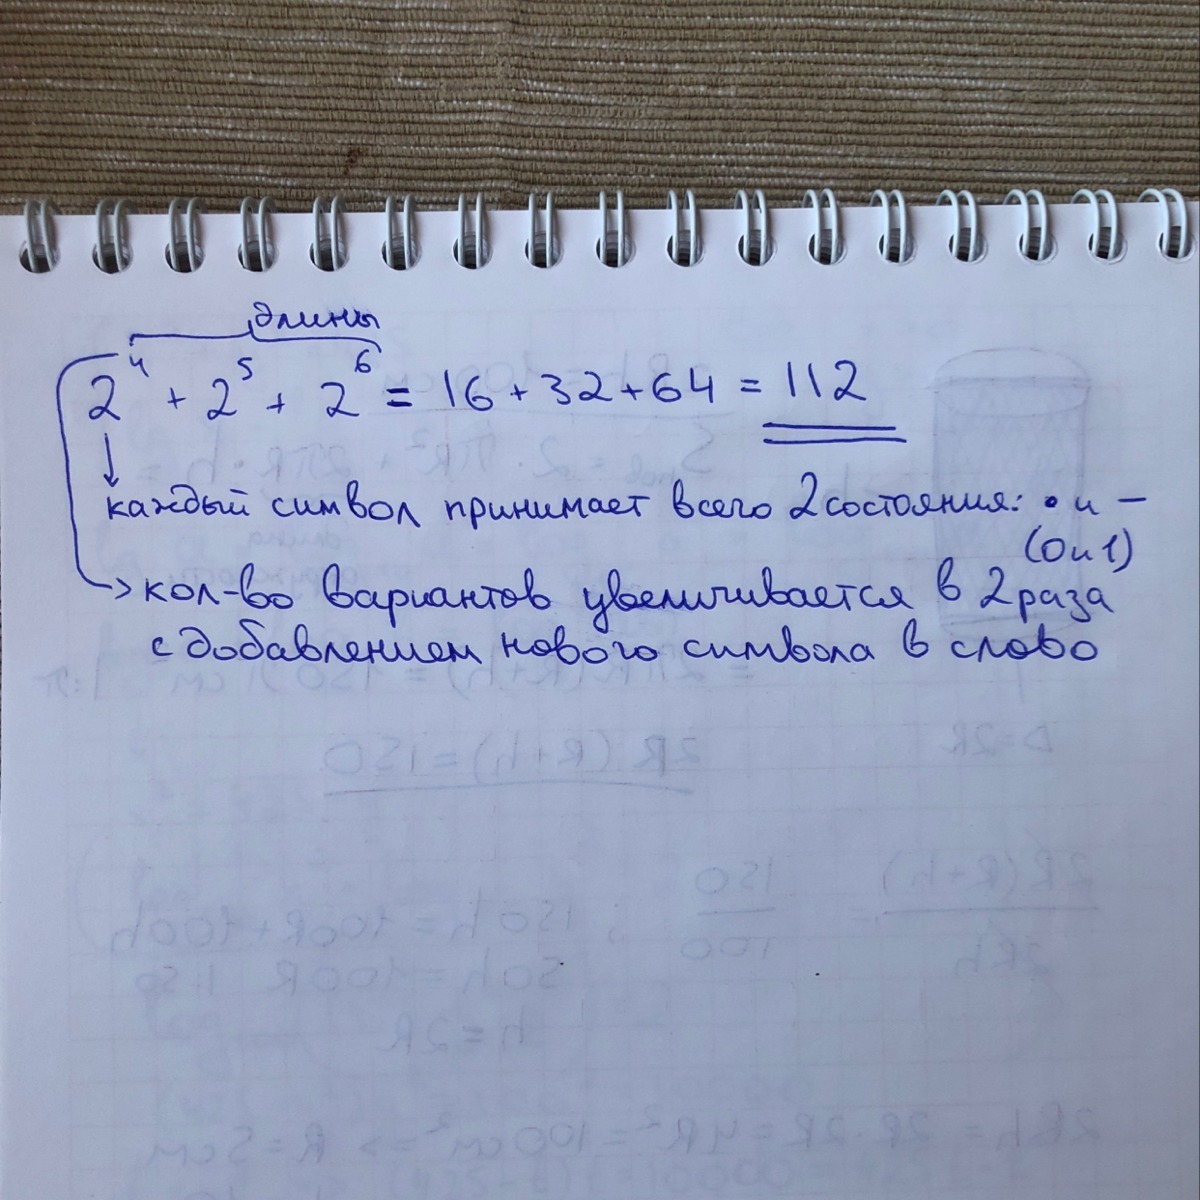 длины
2⁴ + 2⁵ + 2⁶ = 16 + 32 + 64 = 112
каждый символ принимает всего 2 состояния: • и –
(0 и 1)
кол-во вариантов увеличивается в 2 раза
с добавлением нового символа в слово